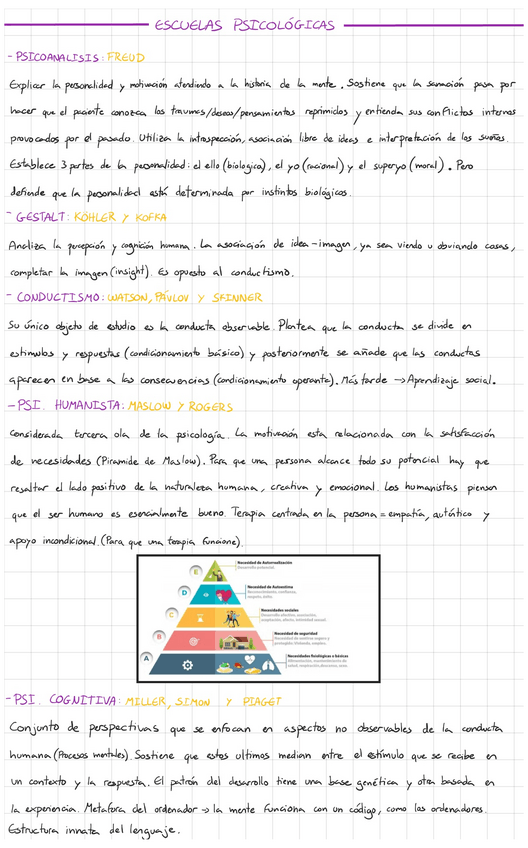 ESCUELAS PSICOLÓGICAS
- PSICOANALISIS: FREUD
Explicar la personalidad y motivación atendiendo a la historia de la mente. Sostiene que la sanación pasa por
hacer que el paciente conozca los traumas/deseos/pensamientos reprimidos y entienda sus conflictos internos
provocados por el pasado. Utiliza la introspección, asociación libre de ideas e interpretación de los sueños.
Establece 3 partes de la personalidad: el ello (biologico), el yo (racional) y el superyo (moral). Pero
defiende que la personalidad está determinada por instintos biológicos.
- GESTALT: KÖHLER Y KOFFA
Analiza la percepción y cognición humana. La asociación de idea-imagen, ya sea viendo u obviando cosas,
completar la imagen (insight). Es opuesto al conductismo.
- CONDUCTISMO: WATSON, PÁVLOV Y SKINNER
Su único objeto de estudio es la conducta observable. Plantea que la conducta se divide en
estimulos y respuestas (condicionamiento básico) y posteriormente se añade que las conductas
aparecen en base a las consecuencias (condicionamiento operante). Más tarde → Aprendizaje social.
- PSI. HUMANISTA: MASLOW Y ROGERS
Considerada tercera ola de la psicología. La motivación esta relacionada con la satisfacción
de necesidades (Piramide de Maslow). Para que una persona alcance todo su potencial hay que
resaltar el lado positivo de la naturaleza humana, creativa y emocional. Los humanistas piensan
que el ser humano es esencialmente bueno. Terapia centrada en la persona = empatía, auténtico y
apoyo incondicional. (Para que una terapia funcione).
E
Necesidad de Autorrealización
Desarrollo potencial.
D
Necesidad de Autoestima
Reconocimiento, confianza,
respeto, éxito.
C
Necesidades sociales
Desarrollo afectivo, asociación,
aceptación, afecto, intimidad sexual.
B
Necesidad de seguridad
A
Necesidades fisiológicas o básicas
- PSI. COGNITIVA: MILLER, SIMON Y PIAGET
Conjunto de perspectivas que se enfocan en aspectos no observables de la conducta
humana (Procesos mentales). Sostiene que estos ultimos median entre el estímulo que se recibe en
un contexto y la respuesta. El patrón del desarrollo tiene una base genética y otra basada en
la experiencia. Metafora del ordenador → la mente funciona con un código, como los ordenadores.
Estructura innata del lenguaje.